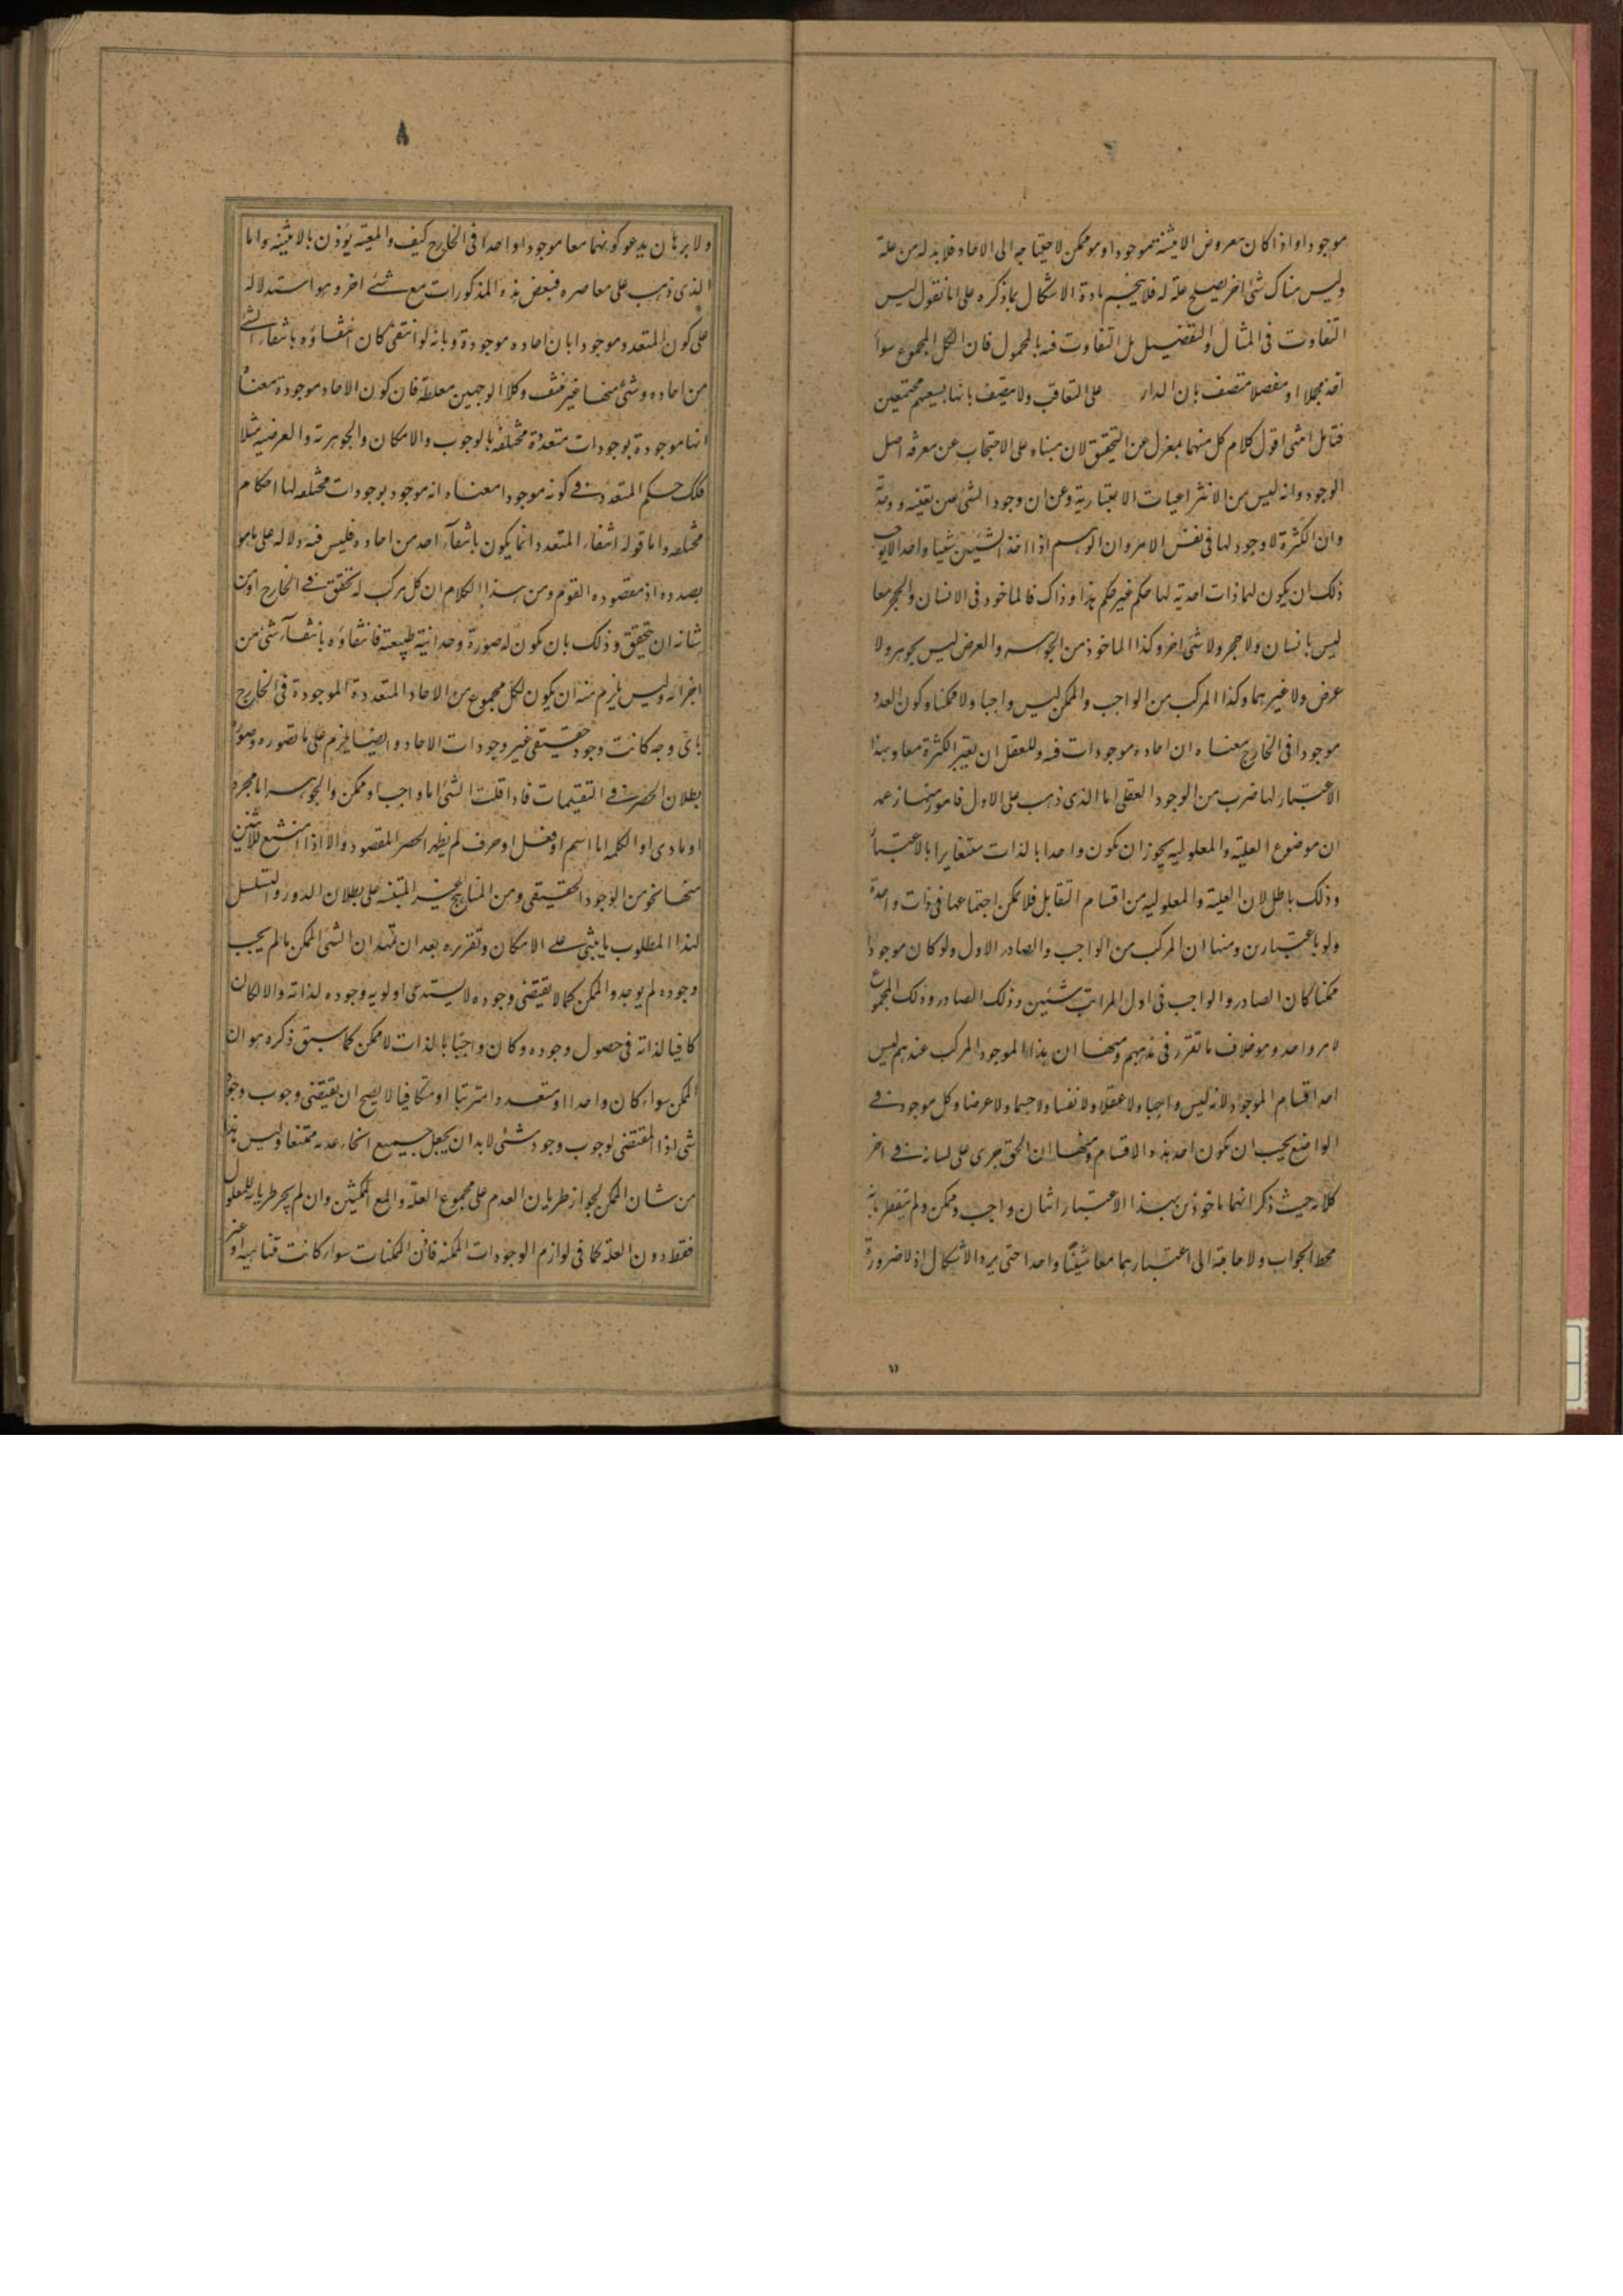 موجودا واذا كان معروض الاثنينية موجودا وهو ممكن لاحتياجه الى الاحاد فلا بد له من علة
وليس هناك شئ اخر يصلح علة له فلا ينحسم مادة الاشكال بما ذكره على انا نقول ليس
التفاوت فى المثال والتفصيل بل التفاوت فيه بالمحمول فان الكل المجموع سواء
اخذ مجملا او مفصلا متصف بان الدار على التعاقب ولا يتصف بانها يسعهم مجتمعين
فتامل انتهى اقول كلام كل منهما بمعزل عن التحقيق لان مبناه على الاحتجاب عن معرفة اصل
الوجود وانه ليس من الانتزاعيات الاعتبارية وعن ان وجود الشئ عين تعينه ووحدته
وان الكثرة لا وجود لها فى نفس الامر وان الوهم اذا اخذ الشيئين شيئا واحدا لا يوجب
ذلك ان يكون لهما ذات احدية لها حكم غير حكم هذا وذاك فالماخوذ فى الانسان والحجر معا
ليس بانسان ولا حجر ولا شئ اخر وكذا الماخوذ من الجوهر والعرض ليس بجوهر ولا
عرض ولا غيرهما وكذا المركب من الواجب والممكن ليس واجبا ولا ممكنا وكون العدد
موجودا فى الخارج معناه ان احاده موجودات فيه وللعقل ان يعتبر الكثرة معا وبهذا
الاعتبار لها ضرب من الوجود العقلى اما الذى ذهب على الاول فامور منها زعمه
ان موضوع العلية والمعلولية يجوز ان يكون واحدا بالذات متغايرا بالاعتبار
وذلك باطل لان العلية والمعلولية من اقسام التقابل فلا يمكن اجتماعهما فى ذات واحدة
ولو باعتبارين ومنها ان المركب من الواجب والصادر الاول ولو كان موجودا
ممكنا كان الصادر والواجب فى اول المراتب شيئين وذلك الصادر وذلك المجموع
لامر واحد وهو خلاف ما تقرر فى مذهبهم ومنها ان هذا الموجود المركب عندهم ليس
احد اقسام الموجود لانه ليس واجبا ولا عقلا ولا نفسا ولا جسما ولا عرضا وكل موجود فى
الواضع يجب ان يكون احد هذه الاقسام ومنها ان الحق جرى على لسانه فى اخر
كلامه حيث ذكر انهما ماخوذين بهذا الاعتبار اثنان واجب وممكن ولم يتفطر بانه
محط الجواب ولا حاجة الى اعتبارهما معا شيئا واحدا حتى يرد الاشكال اذ لا ضرورة
٨
ولا برهان يدعو كونهما معا موجودا واحدا فى الخارج كيف والمعية يؤذن بالاثنينية واما
الذى ذهب على معاصره فبعض هذه المذكورات مع شئ اخر وهو استدلاله
على كون المتعدد موجودا بان احاده موجودة وبانه لو انتفى كان انتفاؤه بانتفاء الشئ
من احاده وشئ منها غير منتف وكلا الوجهين مغلطة فان كون الاحاد موجودة معناه
انها موجودة بوجودات متعددة مختلفة بالوجوب والامكان والجوهرية والعرضية مثلا
فلك حكم المتعدد فى كونه موجودا معناه انه موجود بوجودات مختلفة لها احكام
مختلفة واما قوله انتفاء المتعدد انما يكون بانتفاء احد من احاده فليس فيه دلالة على ما هو
بصدده اذ مقصوده القوم ومن هذا الكلام ان كل مركب له تحقق فى الخارج او من
شانه ان يتحقق وذلك بان يكون له صورة وحدانية طبيعية فانتفاؤه بانتفاء شئ من
اجزائه وليس يلزم منه ان يكون لكل مجموع من الاحاد المتعددة الموجودة فى الخارج
باى وجه كانت وجود حقيقى غير وجودات الاحاد وايضا يلزم على ما تصوره وصوره
بطلان الحصر فى التقسيمات فاذا قلت الشئ اما واجب او ممكن والجوهر اما مجرد
او مادى او الكلمة اما اسم او فعل او حرف لم يظهر الحصر المقصود والا اذا امتنع للاثنين
منها نحو من الوجود الحقيقى ومن المناهج غير المتبنية على بطلان الدور والتسلسل
لهذا المطلوب ما يبتنى على الامكان وتقريره بعد ان تمهد ان الشئ الممكن ما لم يجب
وجوده لم يوجد والممكن كما لا يقتضى وجوده لا يستدعى اولوية وجوده لذاته والا لكان
كافيا لذاته فى حصول وجوده وكان واجبا بالذات لا ممكن كما سبق ذكره هو ان
الممكن سواء كان واحدا او متعددا مترتبا او متكافيا لا يصح ان يقتضى وجوب وجود
شئ اذ المقتضى لوجوب وجود شئ لا بد ان يجعل جميع انحاء عدمه ممتنعا وليس هذا
من شان الممكن لجواز طريان العدم على مجموع العلة والمع الممكنين وان لم يجز طريانه للمعلول
فقط دون العلة كما فى لوازم الوجودات الممكنة فاذن الممكنات سواء كانت متناهية او غير